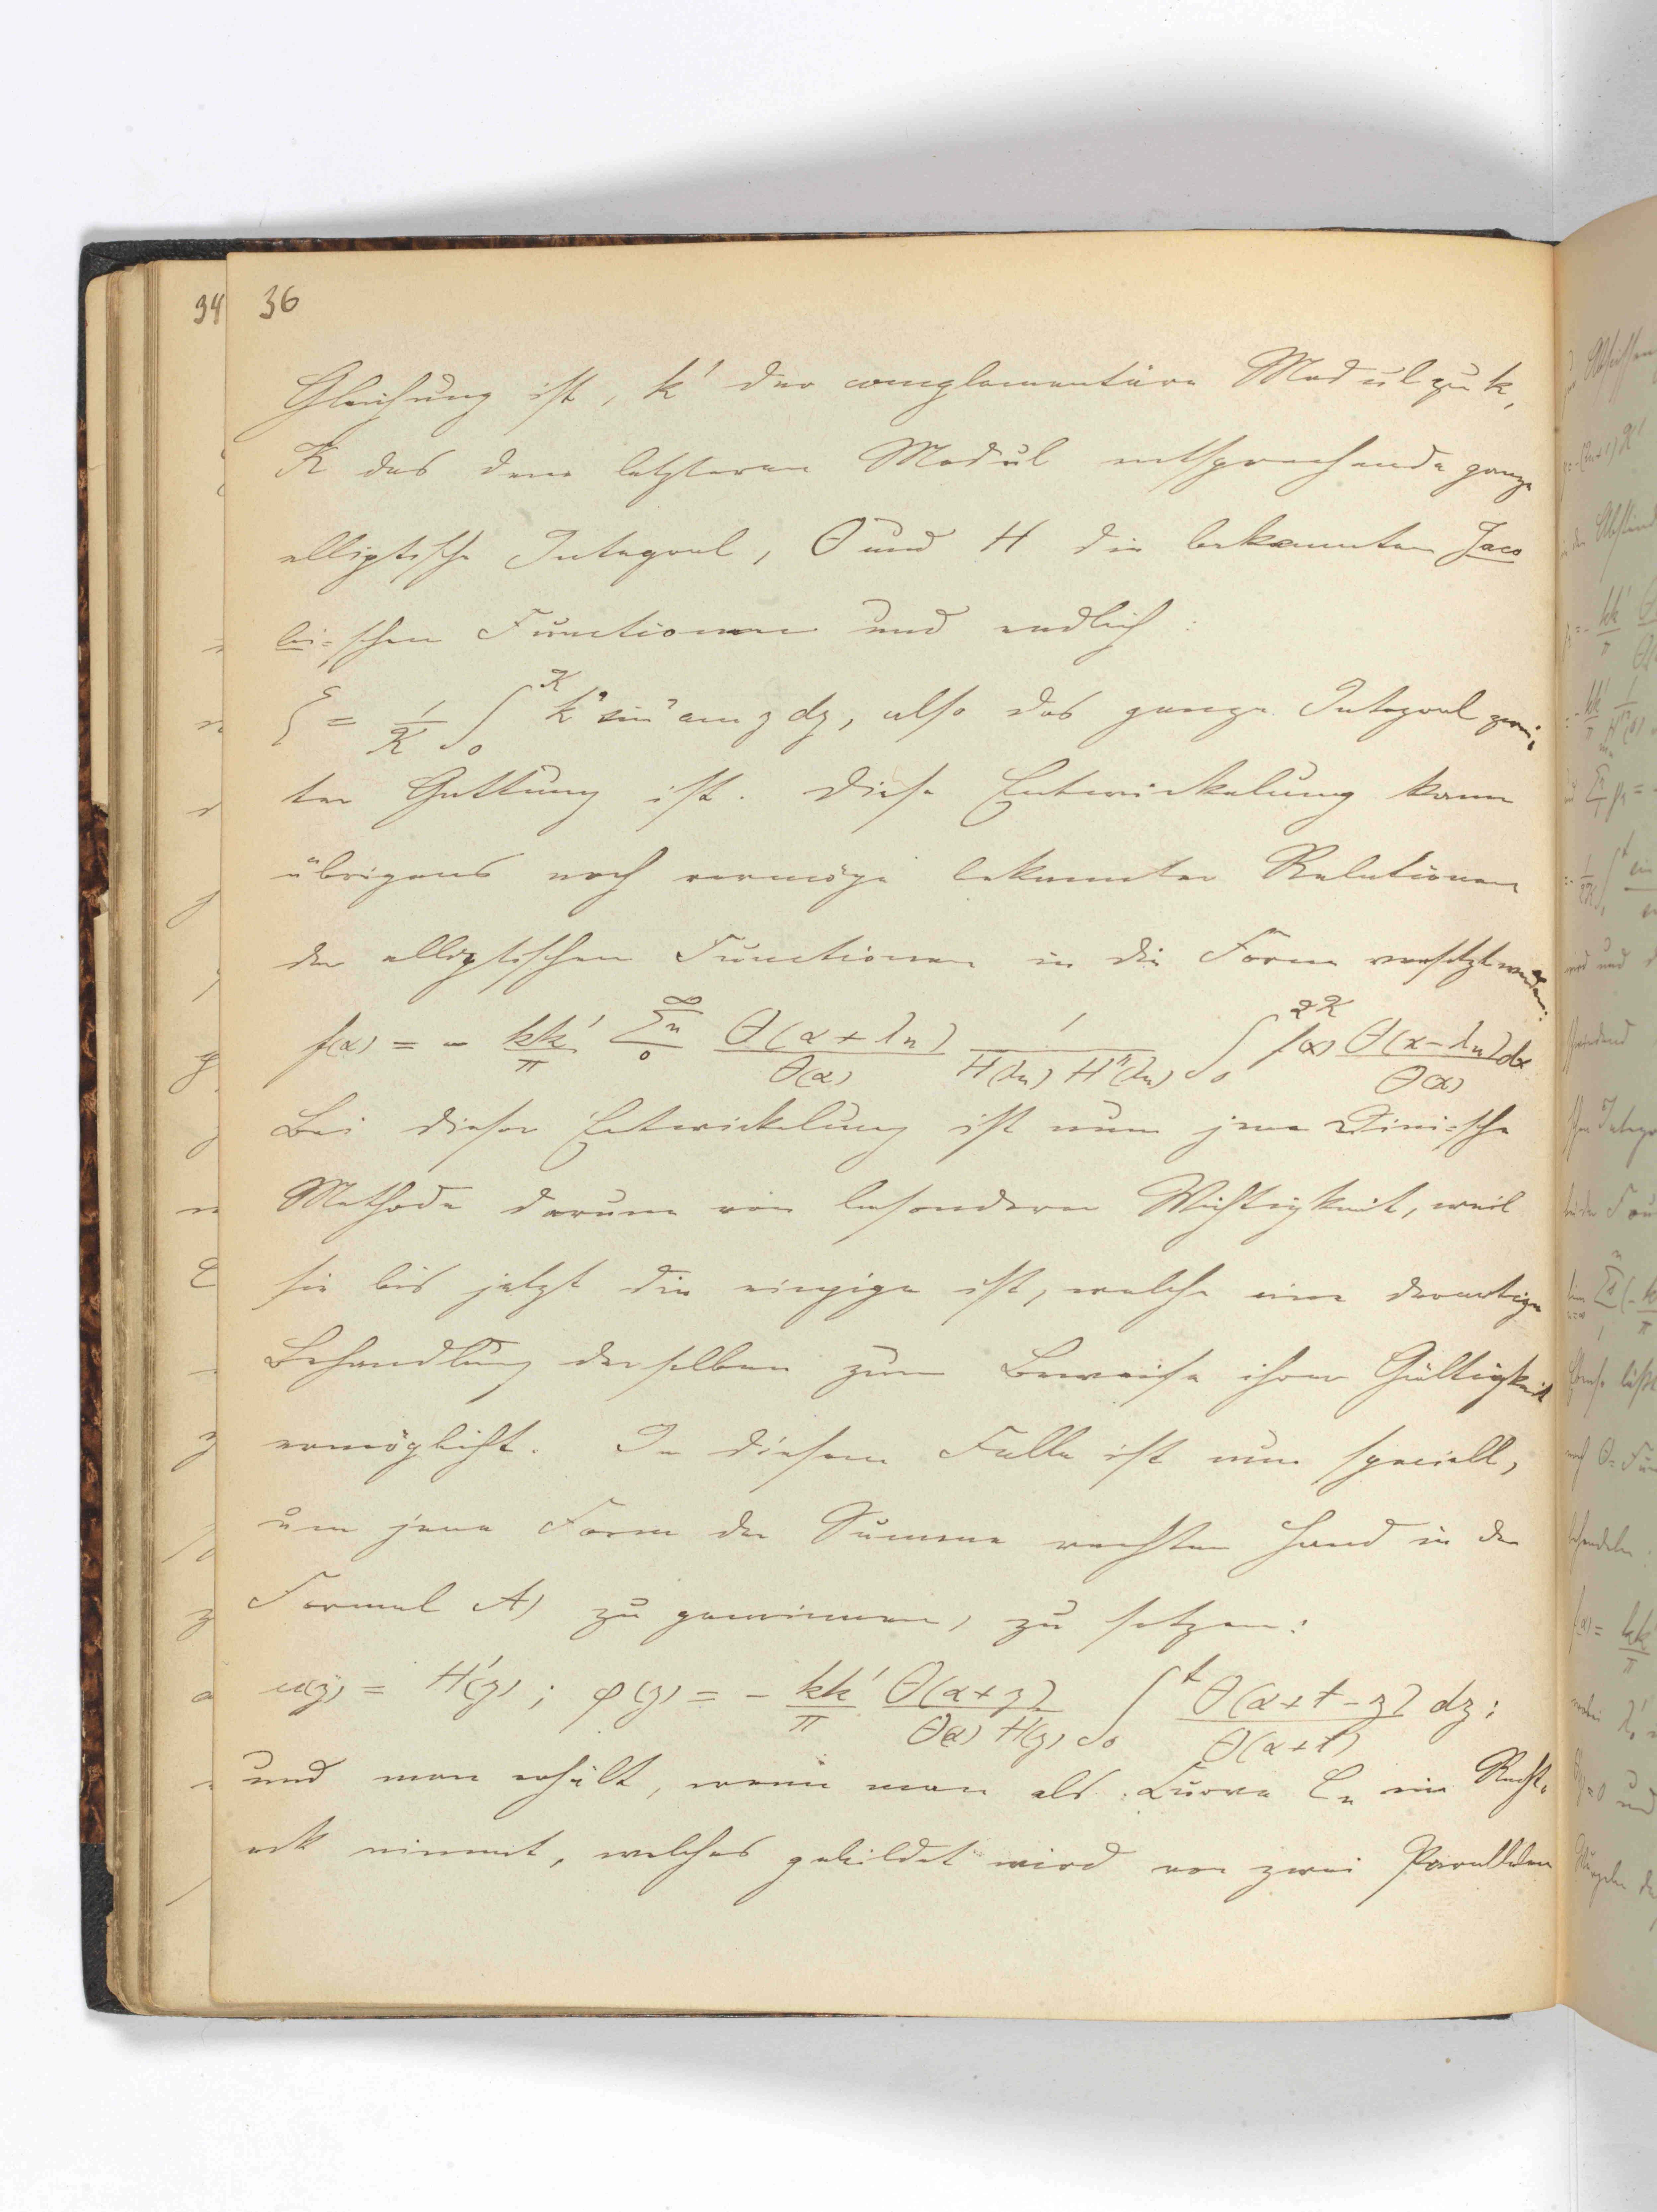 36
34
Gleichung ist, k' der complementäre Modul zu k,
K das dem letzteren Modul entsprechende ganze
elliptische Integral, Θ und H die bekannten Jaco
bi-schen Functionen und endlich:
ζ = 1/K ∫₀^K k² sin² am z dz, also das ganze Integral zwei,
ter Gattung ist. Diese Entwickelung kann
übrigens noch vermöge bekannter Relationen
der elliptischen Functionen in die Form versetzt werden:
f(α) = - kk'/π Σₙ₀^∞ Θ(α+λₙ)/Θ(α) 1/(H(λₙ) H''(λₙ)) ∫₀^2K f(x) Θ(x-λₙ)/Θ(x) dx
Bei dieser Entwickelung ist nun jene Dini-sche
Methode darum von besonderer Wichtigkeit, weil
sie bis jetzt die einzige ist, welche eine derartige
Behandlung derselben zum Beweise ihrer Gültigkeit
ermöglicht. In diesem Falle ist nun speciell,
um jene Form der Summe rechter Hand in der
Formel A) zu gewinnen, zu setzen:
w(z) = H'(z); φ(z) = - kk'/π Θ(α+z)/(Θ(α) H(z)) ∫₀^t Θ(α+t-z)/Θ(α+t) dz;
und man erhält, wenn man als Curve Cₙ ein Recht,
eck nimmt, welches gebildet wird von zwei Parallelen